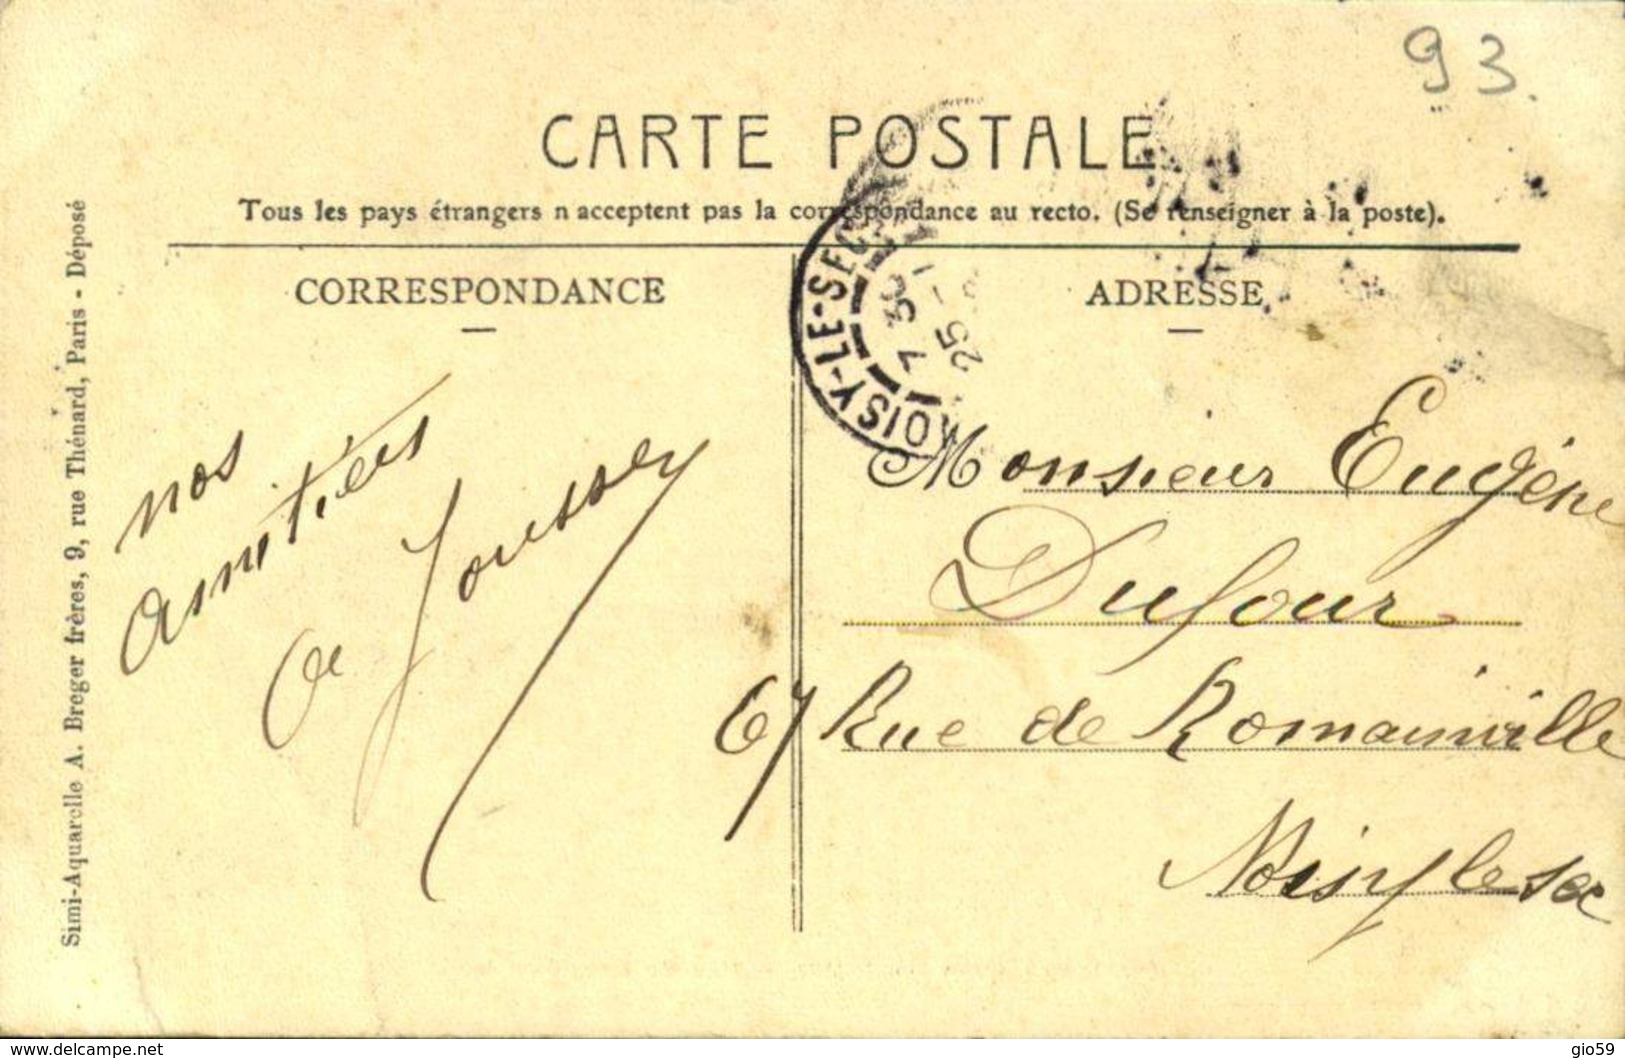 93
CARTE POSTALE
Tous les pays étrangers n'acceptent pas la correspondance au recto. (Se renseigner à la poste).
CORRESPONDANCE
ADRESSE
NOISY-LE-SEC
7 30
25 - 1
nos
amitiés
Joussey
Monsieur Eugène
Dufour
67 Rue de Romainville
Noisy le sec
Simi-Aquarelle A. Breger frères, 9, rue Thénard, Paris - Déposé
www.delcampe.net
gio59